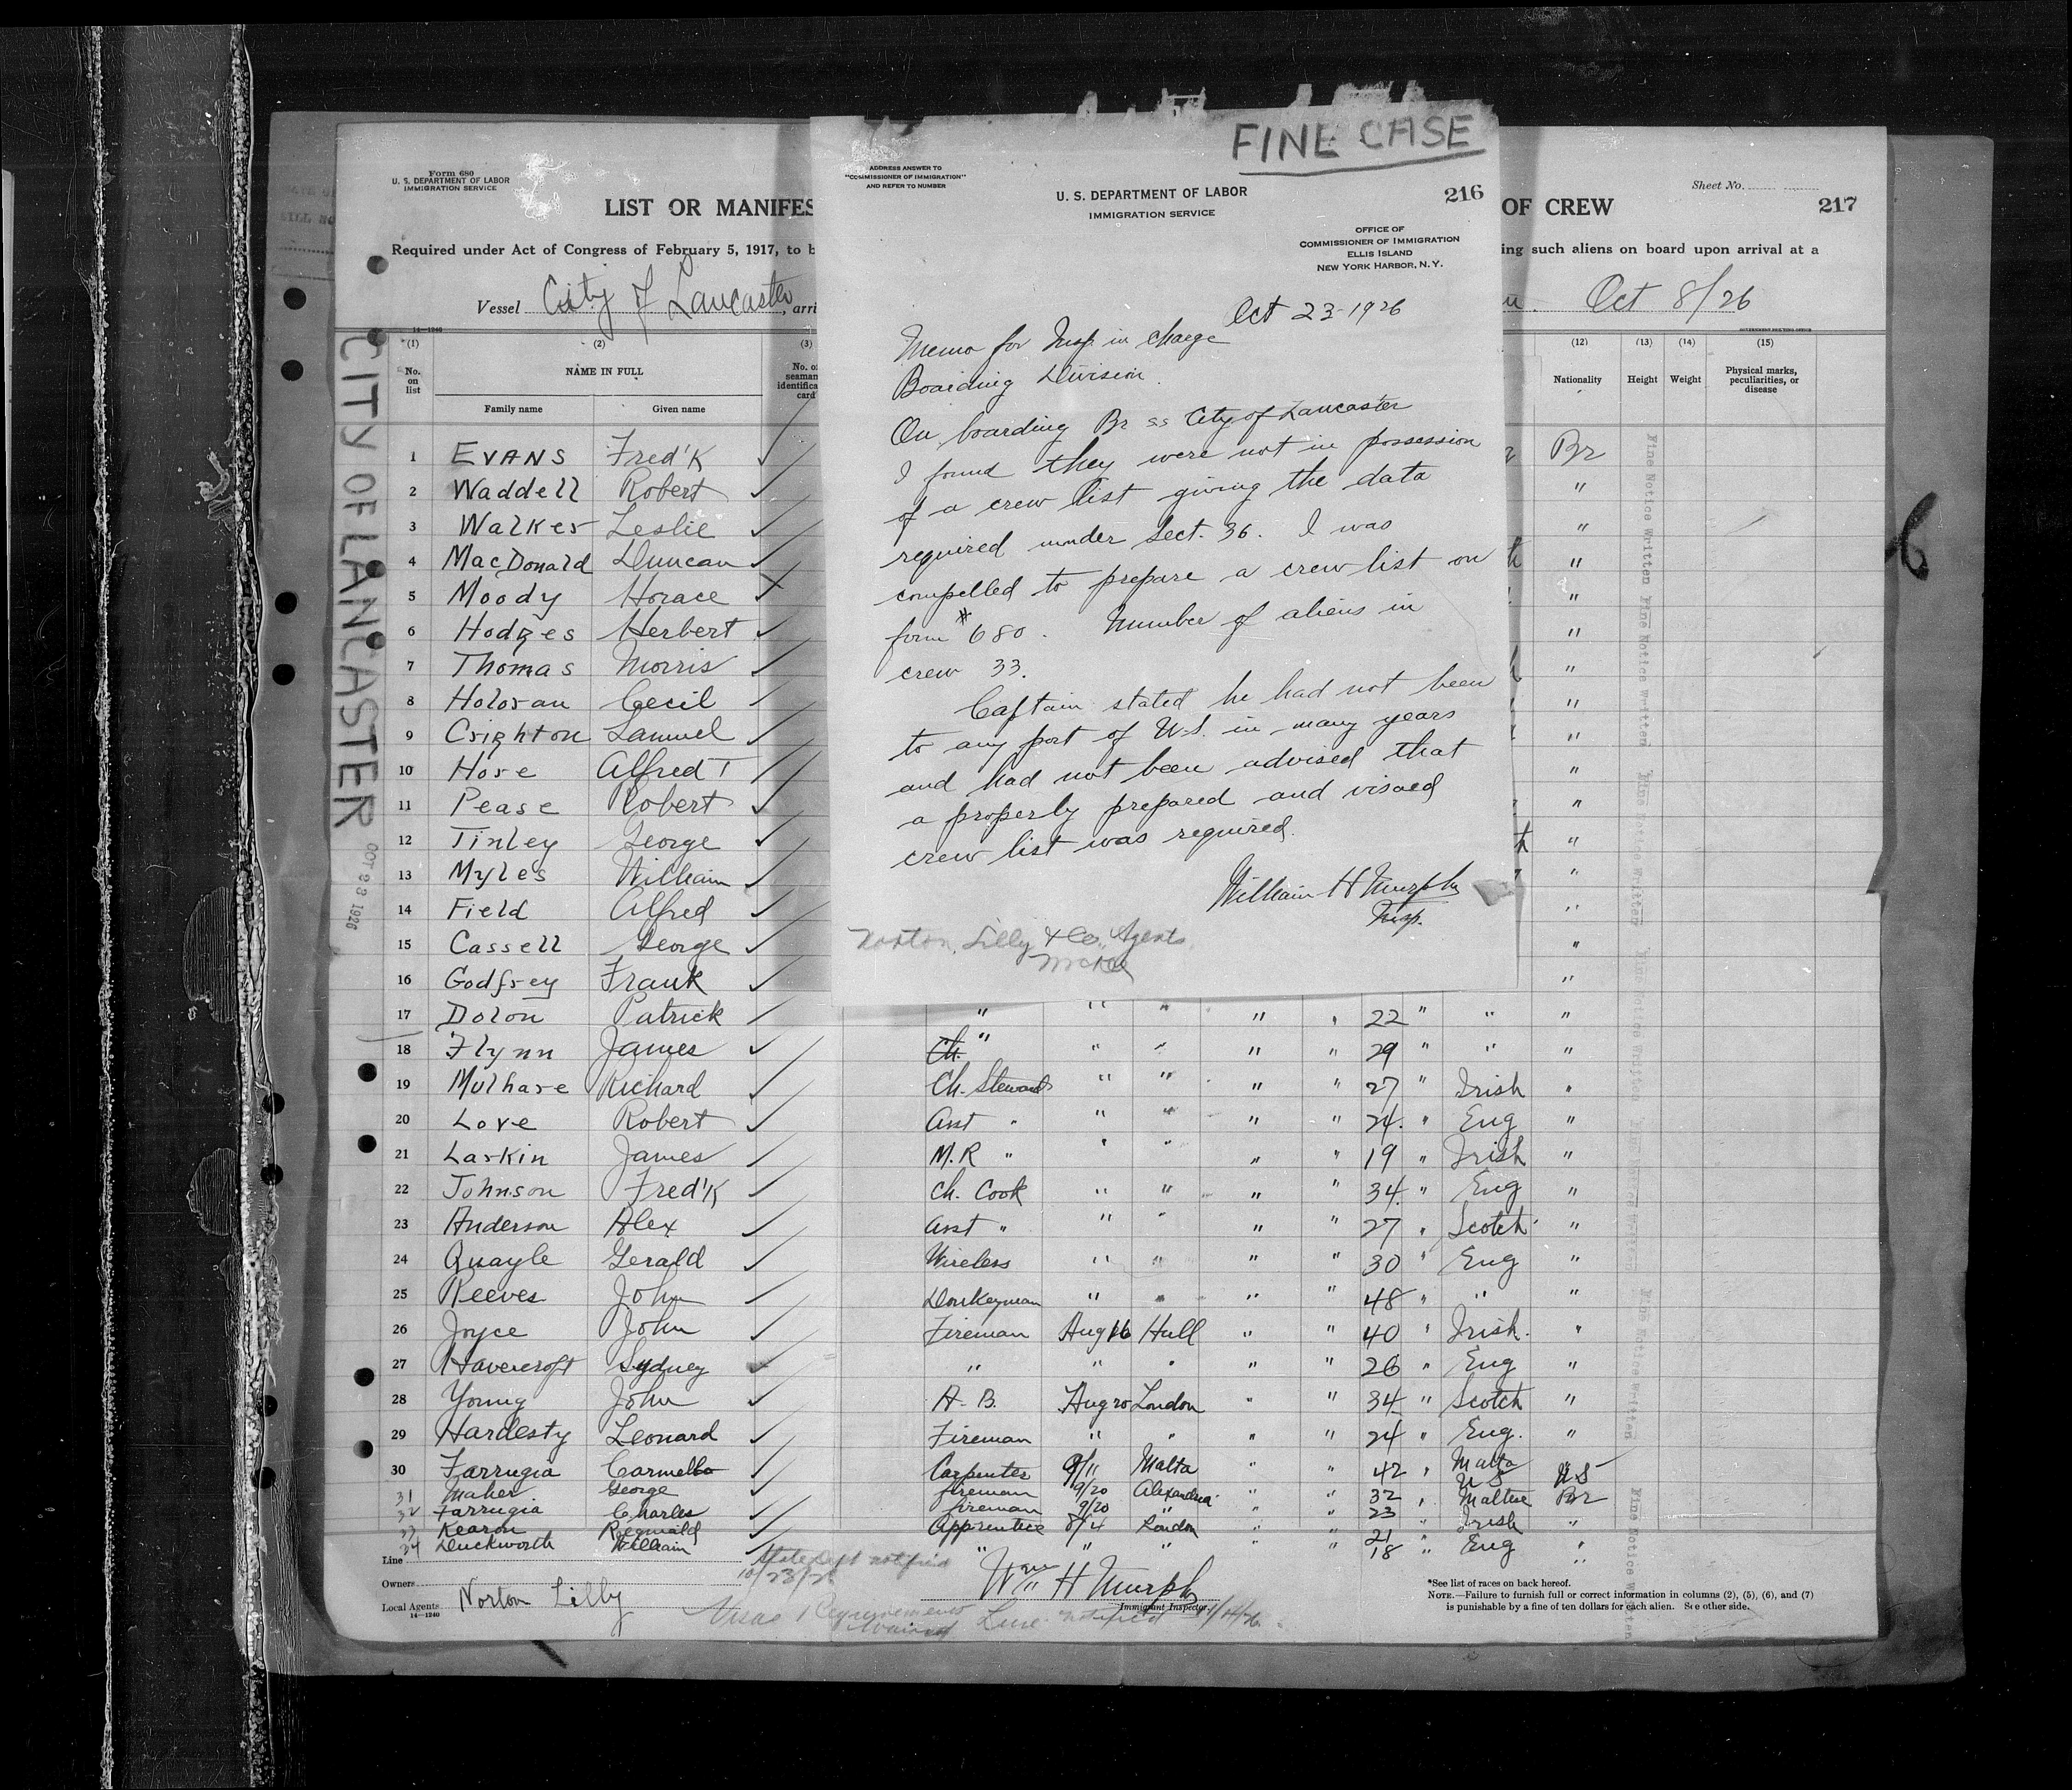 FINE CASE
ADDRESS ANSWER TO
"COMMISSIONER OF IMMIGRATION"
AND REFER TO NUMBER
U. S. DEPARTMENT OF LABOR
IMMIGRATION SERVICE
216
OFFICE OF
COMMISSIONER OF IMMIGRATION
ELLIS ISLAND
NEW YORK HARBOR, N. Y.
Oct 23-1926
Memo for Insp in charge
Boarding Division.
On boarding Br ss City of Lancaster
I found they were not in possession
of a crew list giving the data
required under Sect. 36. I was
compelled to prepare a crew list on
form #680. Number of aliens in
crew 33.
Captain stated he had not been
to any port of U.S. in many years
and had not been advised that
a properly prepared and visaed
crew list was required.
William H Murphy
Insp.
Norton, Lilly & Co., Agents.
Form 680
U. S. DEPARTMENT OF LABOR
IMMIGRATION SERVICE
Sheet No.
LIST OR MANIFES OF CREW 217
Required under Act of Congress of February 5, 1917, to b ing such aliens on board upon arrival at a
Vessel City of Lancaster, arri Oct 8/26
14—1240
GOVERNMENT PRINTING OFFICE
CITY OF LANCASTER
OCT 23 1926
(1) (2) (3) (12) (13) (14) (15)
No. on list NAME IN FULL No. of seaman's identification card Nationality Height Weight Physical marks, peculiarities, or disease
Family name Given name
1 EVANS Fred'K Br
2 Waddell Robert "
3 Walker Leslie "
4 MacDonald Duncan "
5 Moody Horace "
6 Hodges Herbert "
7 Thomas Morris "
8 Holoran Cecil "
9 Crighton Samuel "
10 Hore Alfred T "
11 Pease Robert "
12 Tinley George "
13 Myles William "
14 Field Alfred "
15 Cassell George "
16 Godfrey Frank "
17 Dolon Patrick " " " " " 22 " " "
18 Flynn James Ch. " " " " " 29 " " "
19 Mulhare Richard Ch. Steward " " " " 27 " Irish "
20 Love Robert Asst " " " " " 24 " Eng "
21 Larkin James M.R " " " " " 19 " Irish "
22 Johnson Fred'K Ch. Cook " " " " 34 " Eng "
23 Anderson Alex Asst " " " " " 27 " Scotch "
24 Quayle Gerald Wireless " " " " 30 " Eng "
25 Reeves John Donkeyman " " " " 48 " " "
26 Joyce John Fireman Aug 16 Hull " " 40 " Irish "
27 Havercroft Sydney " " " " " 26 " Eng "
28 Young John A.B. Aug 20 London " " 34 " Scotch "
29 Hardesty Leonard Fireman " " " " 24 " Eng. "
30 Farrugia Carmelo Carpenter 9/11 Malta " " 42 " Malta "
31 Maher George fireman 9/20 Alexandria " " 32 " US US
32 Farrugia Charles fireman 9/20 " " " 23 " Maltese Br
33 Kearon Reginald Apprentice 8/4 London " " 21 " Irish "
34 Duckworth William " " " " " 18 " Eng "
Line
State Dept notified
10/23/26
Owners
Local Agents Norton Lilly
14—1240
Wm H Murphy
Immigrant Inspector.
Visae Requirements
waived
Line notified
*See list of races on back hereof.
NOTE.—Failure to furnish full or correct information in columns (2), (5), (6), and (7)
is punishable by a fine of ten dollars for each alien. See other side.
Fine Notice Written Fine Notice Written Fine Notice Written Fine Notice Written Fine Notice Written Fine Notice Written Fine Notice Written
6